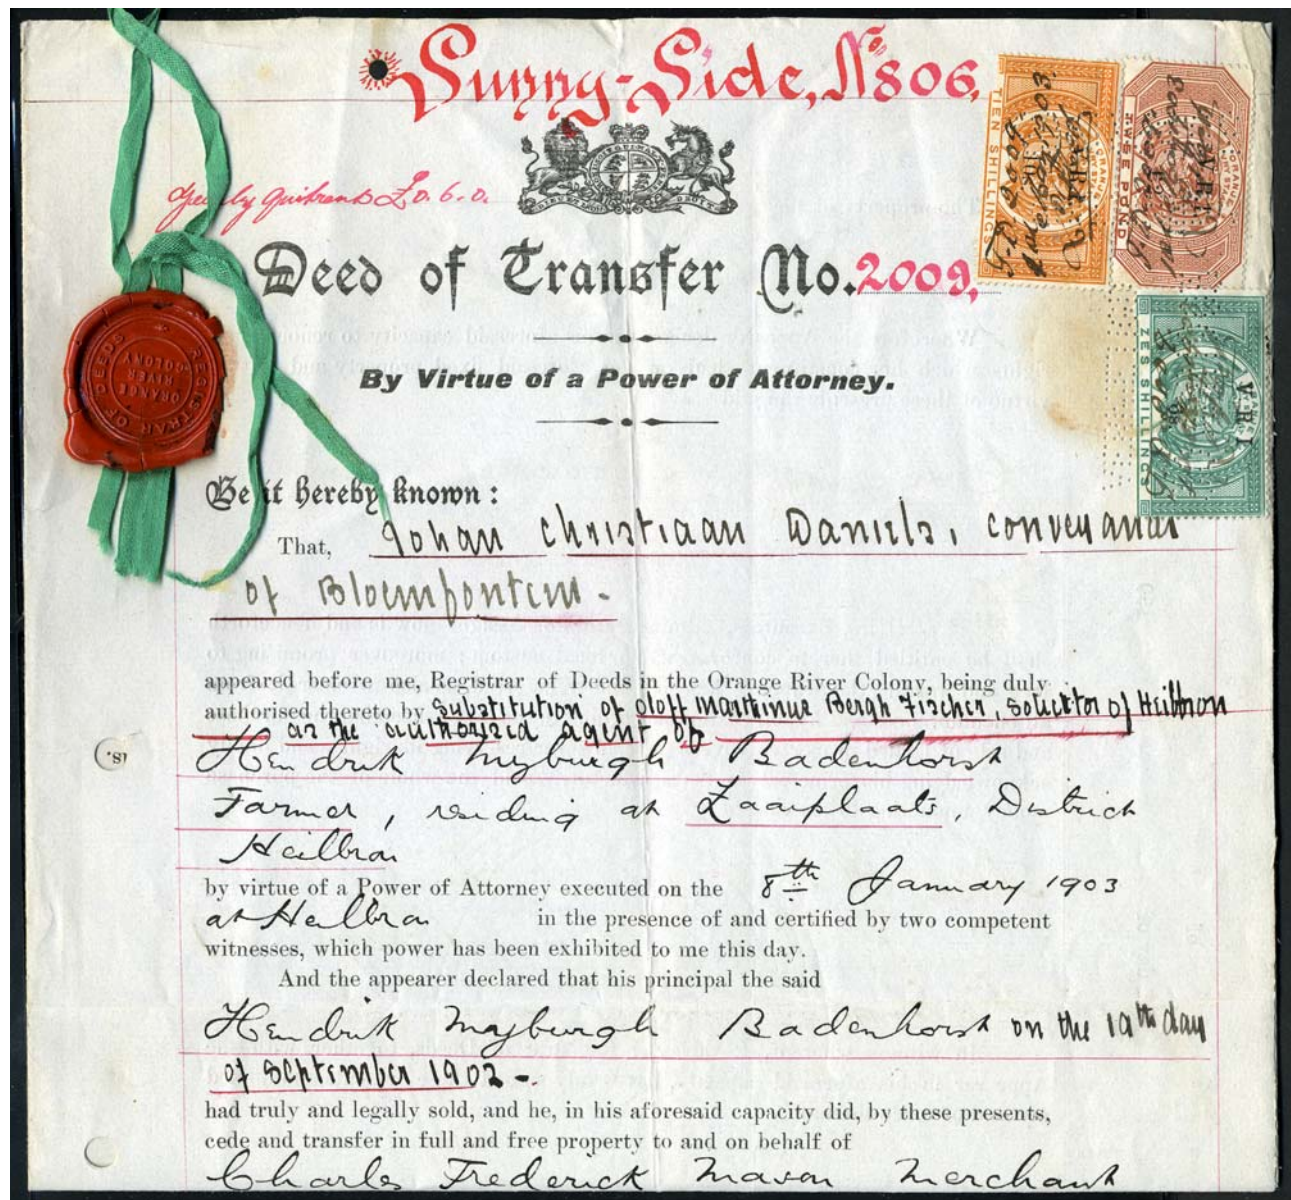 Sunny-Side, No 806.
Yearly Quitrent £0.6.0.
Deed of Transfer No. 2009,
By Virtue of a Power of Attorney.
Be it hereby known:
That, Johan Christiaan Daniels, conveyancer
of Bloemfontein -
appeared before me, Registrar of Deeds in the Orange River Colony, being duly
authorised thereto by substitution of Oloff Marthinus Bergh Fischer, solicitor of Heilbron
as the authorized agent of
Hendrik Myburgh Badenhorst
Farmer, residing at Zaaiplaats, District
Heilbron
by virtue of a Power of Attorney executed on the 8th January 1903
at Heilbron in the presence of and certified by two competent
witnesses, which power has been exhibited to me this day.
And the appearer declared that his principal the said
Hendrik Myburgh Badenhorst on the 10th day
of September 1902 -
had truly and legally sold, and he, in his aforesaid capacity did, by these presents,
cede and transfer in full and free property to and on behalf of
Charles Frederick Mason Merchant
REGISTRAR OF DEEDS
ORANGE
RIVER
COLONY
TIEN SHILLINGS
TWEE POND
ZES SHILLINGS
V.R.I.